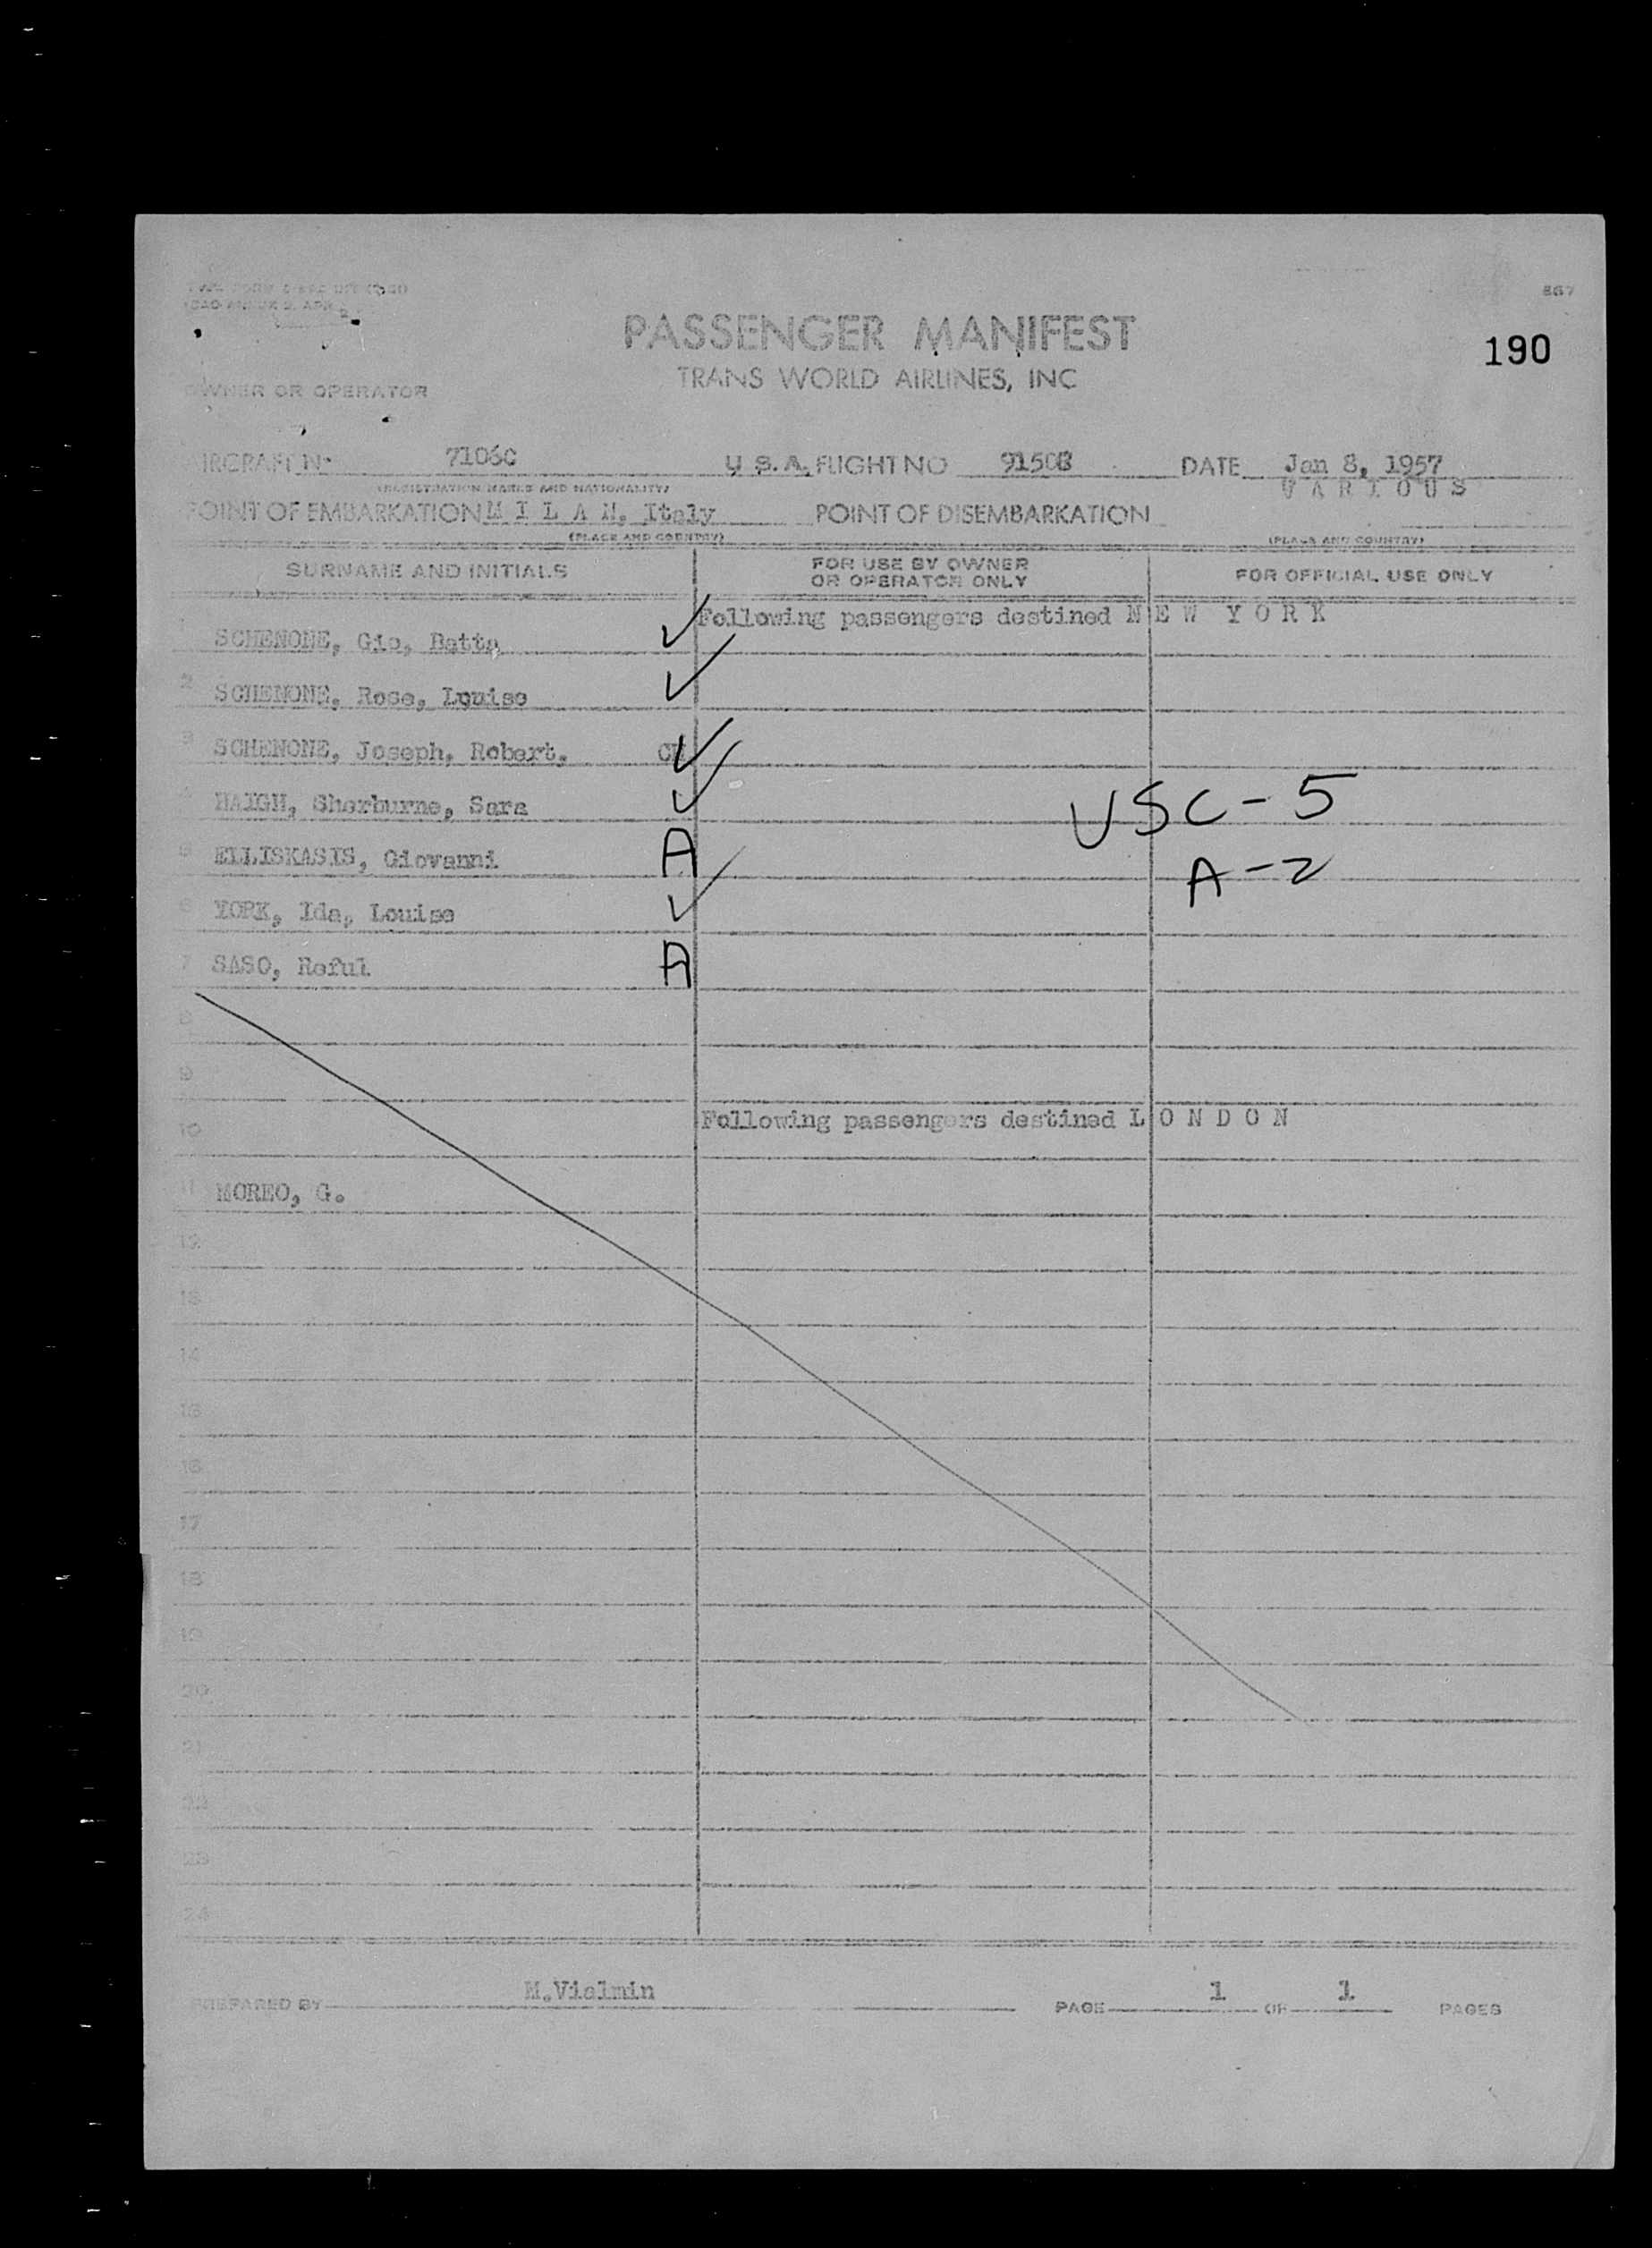 867
PASSENGER MANIFEST
190
TRANS WORLD AIRLINES, INC
OWNER OR OPERATOR
AIRCRAFT No 7106C U.S.A. FLIGHT NO 9150B DATE Jan 8, 1957
(REGISTRATION MARKS AND NATIONALITY)
VARIOUS
POINT OF EMBARKATION M I L A N, Italy POINT OF DISEMBARKATION
(PLACE AND COUNTRY) (PLACE AND COUNTRY)
SURNAME AND INITIALS FOR USE BY OWNER OR OPERATOR ONLY FOR OFFICIAL USE ONLY
Following passengers destined N E W Y O R K
1 SCHENONE, Gio, Batta ✓
2 SCHENONE, Rose, Louise ✓
3 SCHENONE, Joseph, Robert. ✓
4 HAIGH, Sherburne, Sara ✓ USC-5
5 ELLISKASIS, Giovanni A A-2
6 YORK, Ida, Louise ✓
7 SASO, Reful A
8
9
10 Following passengers destined L O N D O N
11 MOREO, G.
12
13
14
15
16
17
18
19
20
21
22
23
24
PREPARED BY M.Vialmin PAGE 1 OF 1 PAGES